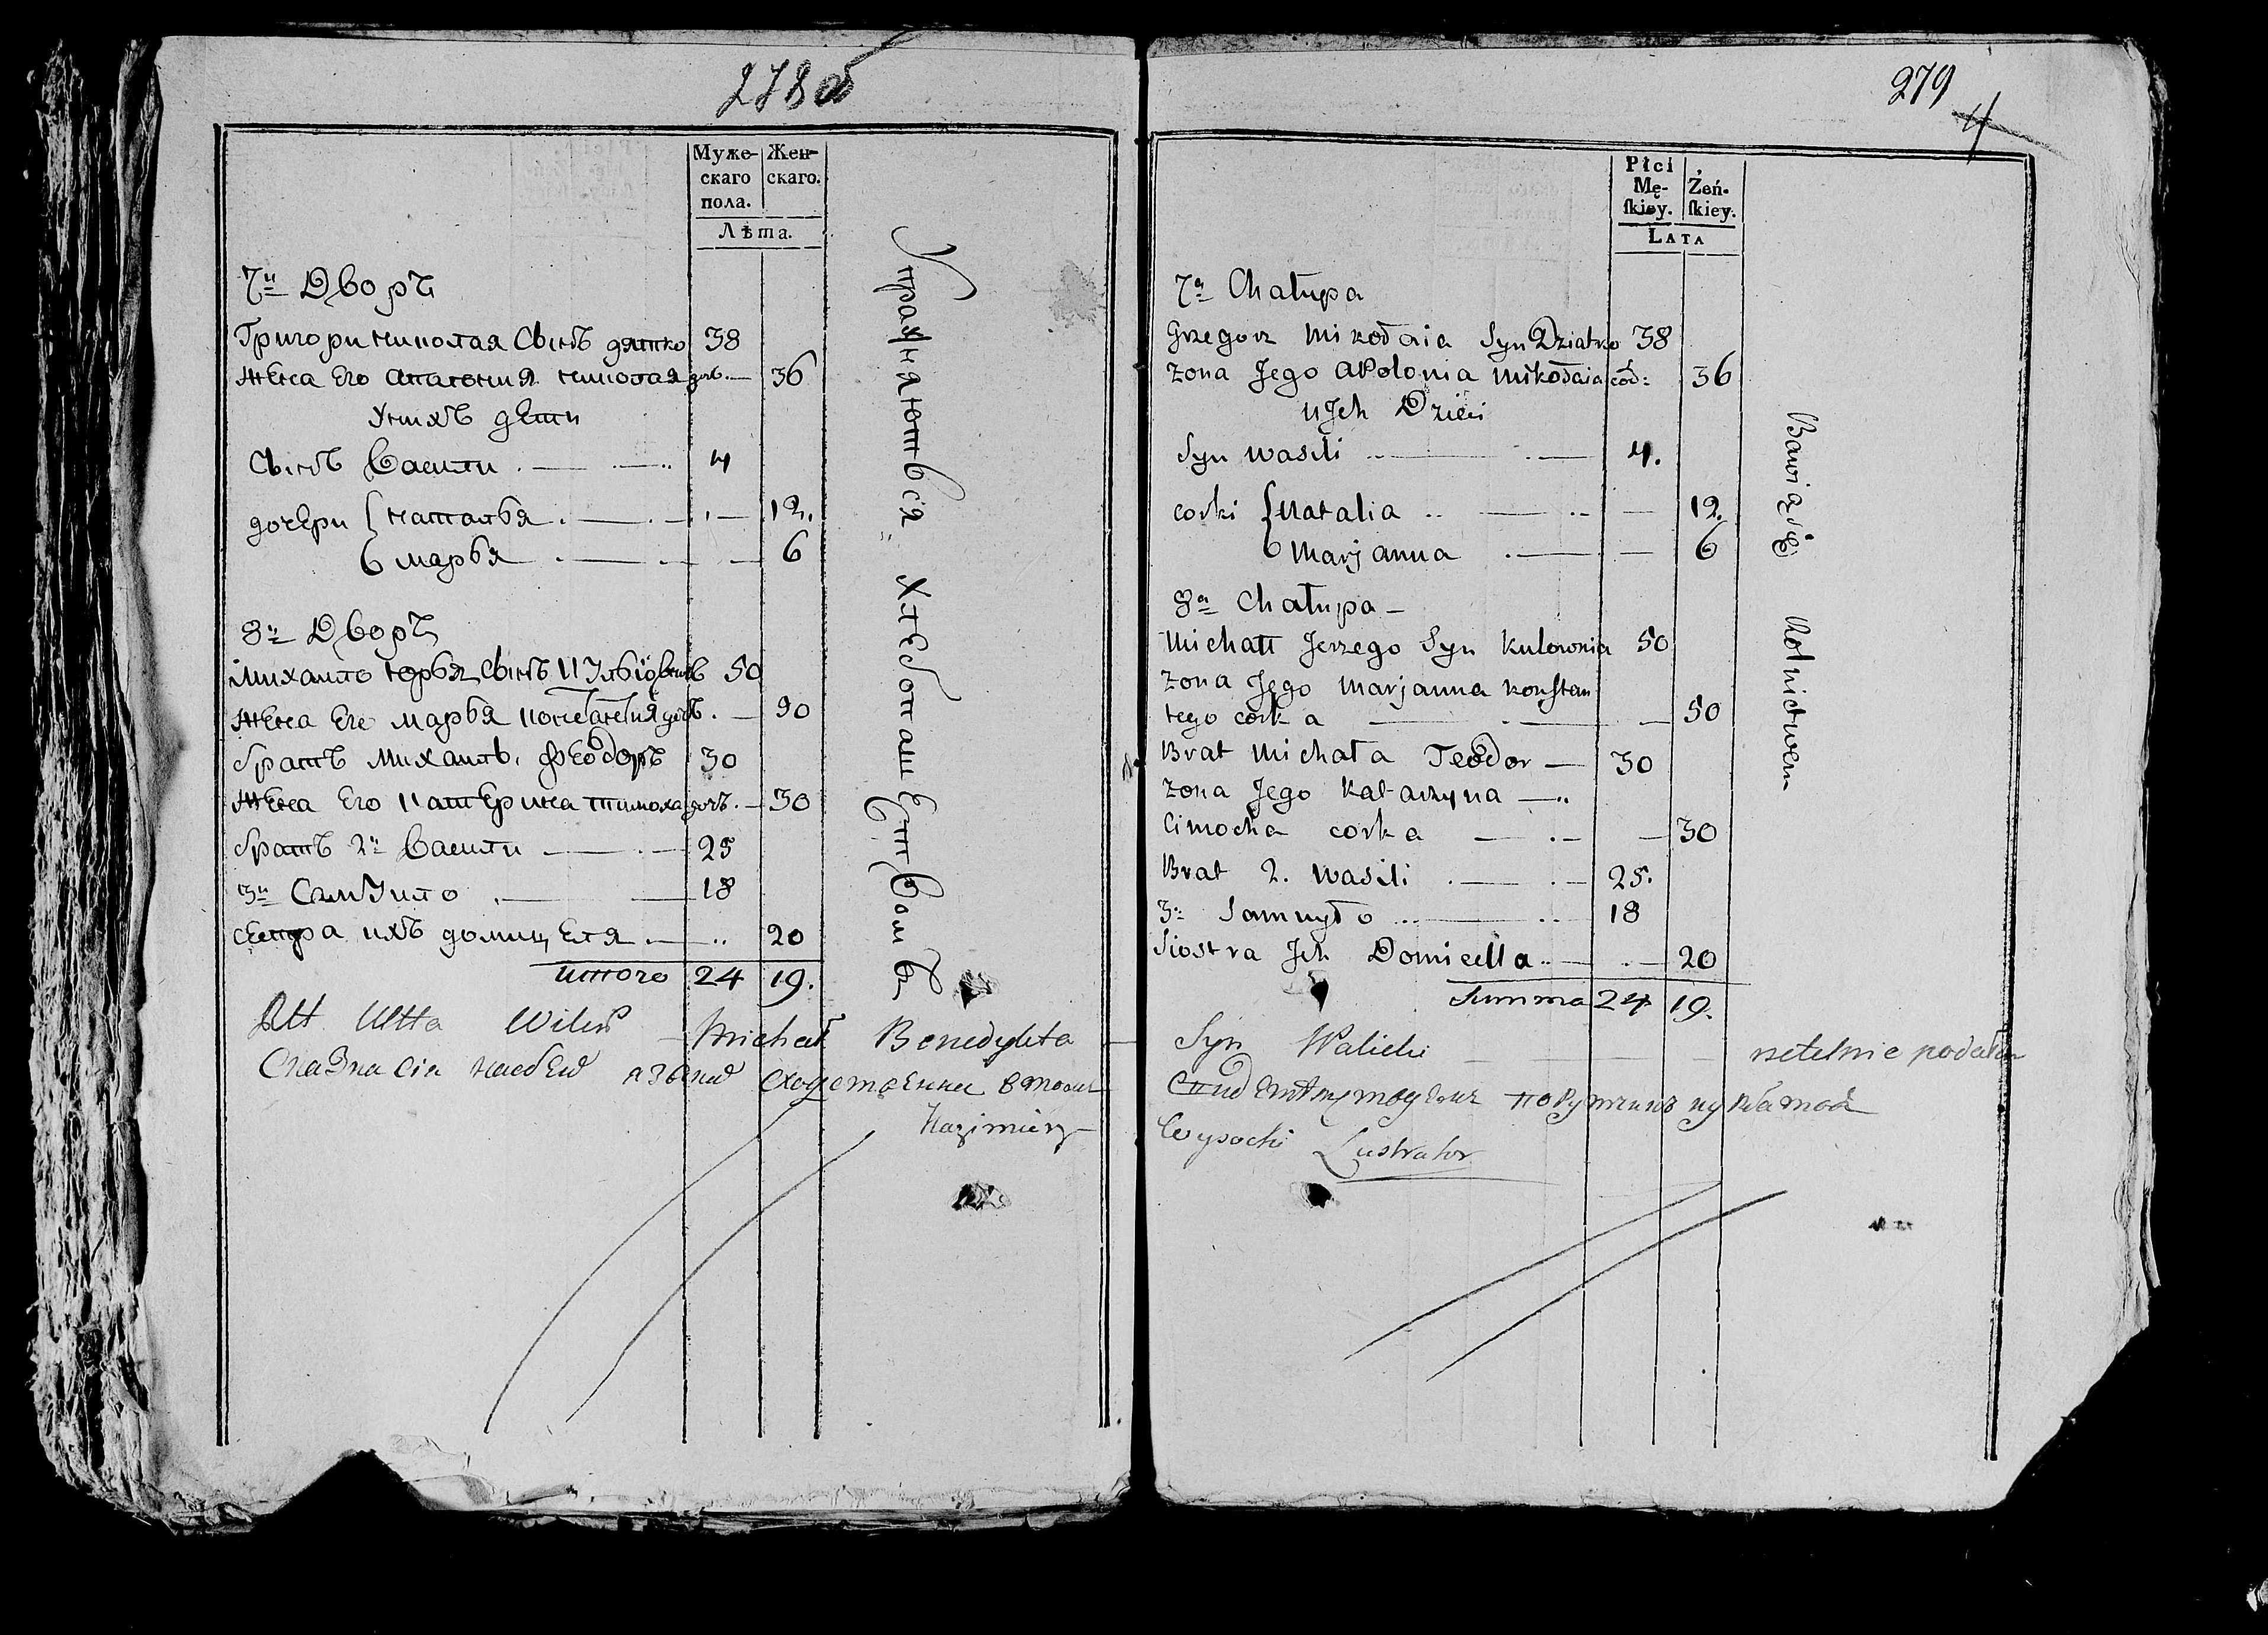 278 об
Муже- Жен-
скаго скаго.
пола.
Лѣта.
7й Дворъ
Григори николая Сынъ дятко 38
жена Его апалония николая доч. — 36
Унихъ дети
Сынъ Васили . — — .. 4
дочери { наталья . — . — . — 12.
марья . — . — — 6
8й Дворъ
Михаило юрья Сынъ 50
жена Его марья доч. — 90
братъ Михаилъ. Феодоръ 30
жена Его Катерина тимоха дочъ. — 30
братъ 2й Васили — . — 25
3й Самуило . — — 18
сестра ихъ домицеля . — .. 20
итого 24 19.
Упражняются хлебопашетвомъ
Michał Benedykta
Kazimierz
279
4
Płci
Mę- Żeń-
ſkiey. ſkiey.
Lata
7a Chałupa
Grzegorz Mikołaia Syn Dziatko 38
Zona Jego Apolonia Mikołaia cór: 36
u Jch Dzieci
Syn Wasili .. — . — 4.
corki { Natalia .. — .. — 12.
Marjanna . — — 6
8a Chałupa —
Michałł Jerzego Syn Kulownia 50
Zona Jego Marjanna Konſtan
tego corka — . — — 50
Brat Michała Teodor — 30
Zona Jego Katarzyna — ..
Cimocha corka — . — — 30
Brat 2. Wasili . — . — 25.
3: Samuyło .. — .. 18
Siostra Jch Domicella .. — . — 20
Summa 24 19.
Bawią się Rolnictwem
Syn Walicki — — — rzetelnie podałem
Wysocki Lustrator